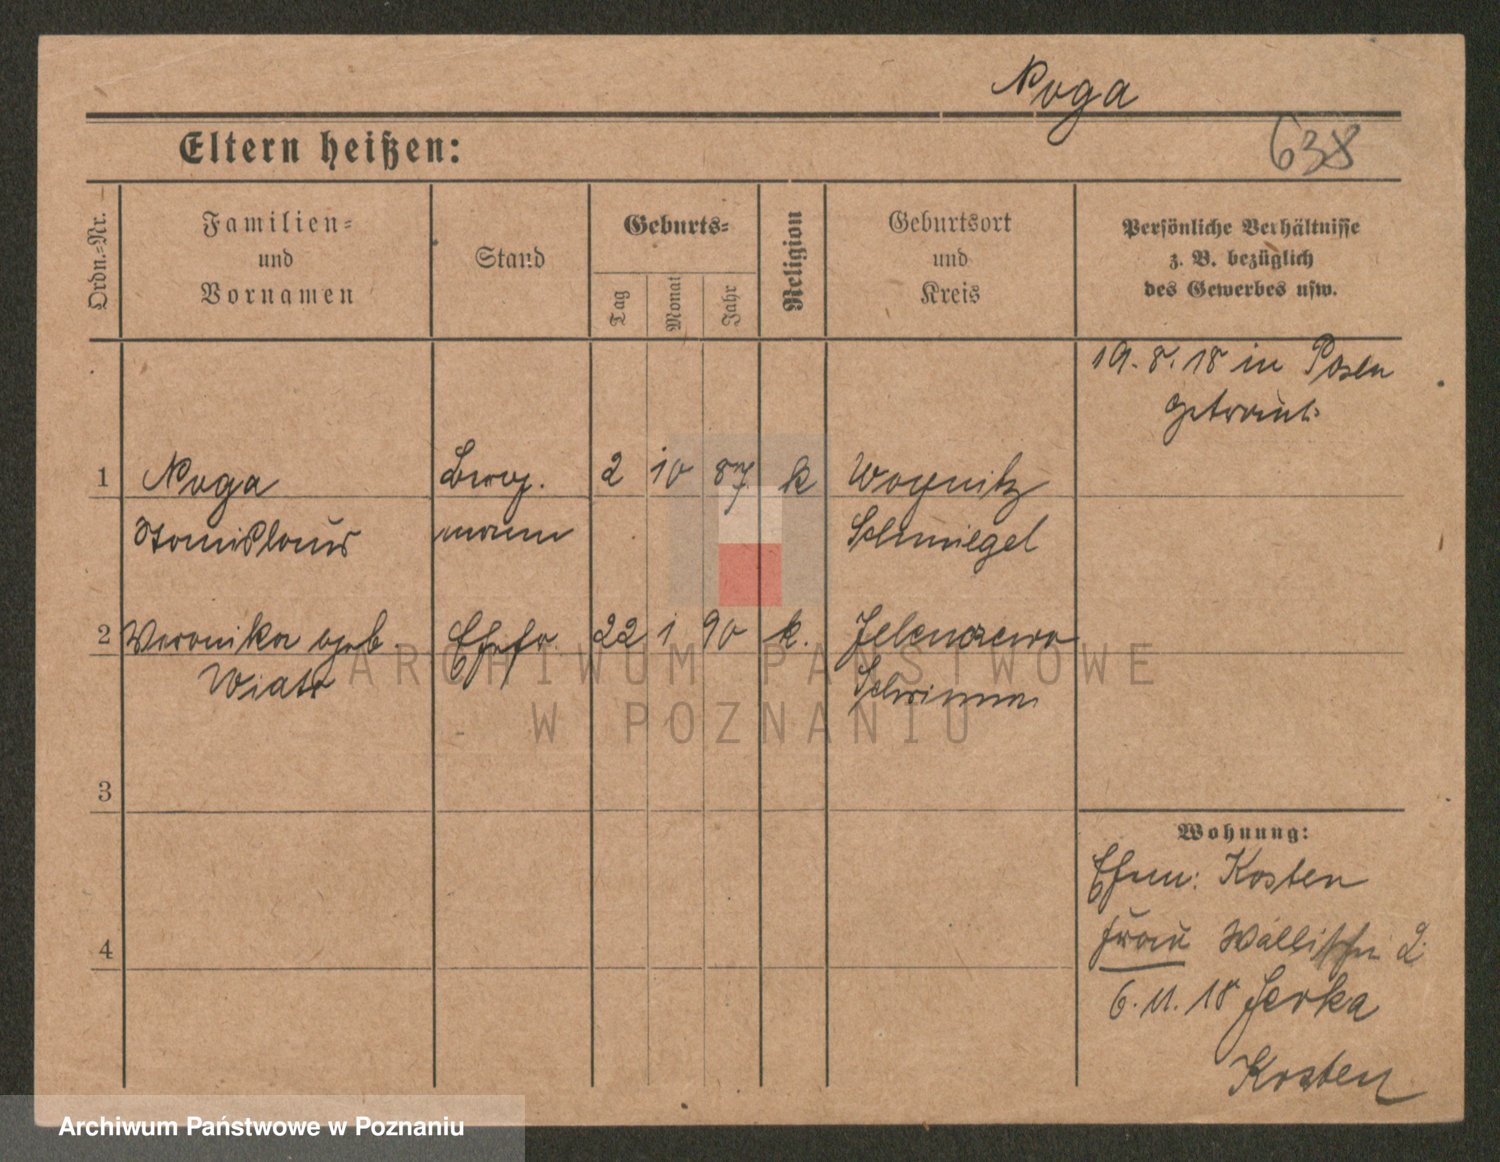 Noga
638
Eltern heißen:
Ordn.-Nr.
Familien-
und
Vornamen
Stand
Geburts-
Tag
Monat
Jahr
Religion
Geburtsort
und
Kreis
Persönliche Verhältnisse
z. B. bezüglich
des Gewerbes usw.
19. 8. 18 in Posen
getraut.
1 Noga Berg. 2 10 87 k Woynitz
Stanislaus mann Schmiegel
2 Veronika geb. Ehefr. 22 1 90 k.
Wiatr Schrimm
3
Wohnung:
Ehem: Kosten
4
Frau Wallischei 2
6. 11. 18 Jerka
Kosten
ARCHIWUM PAŃSTWOWE
W POZNANIU
Archiwum Państwowe w Poznaniu